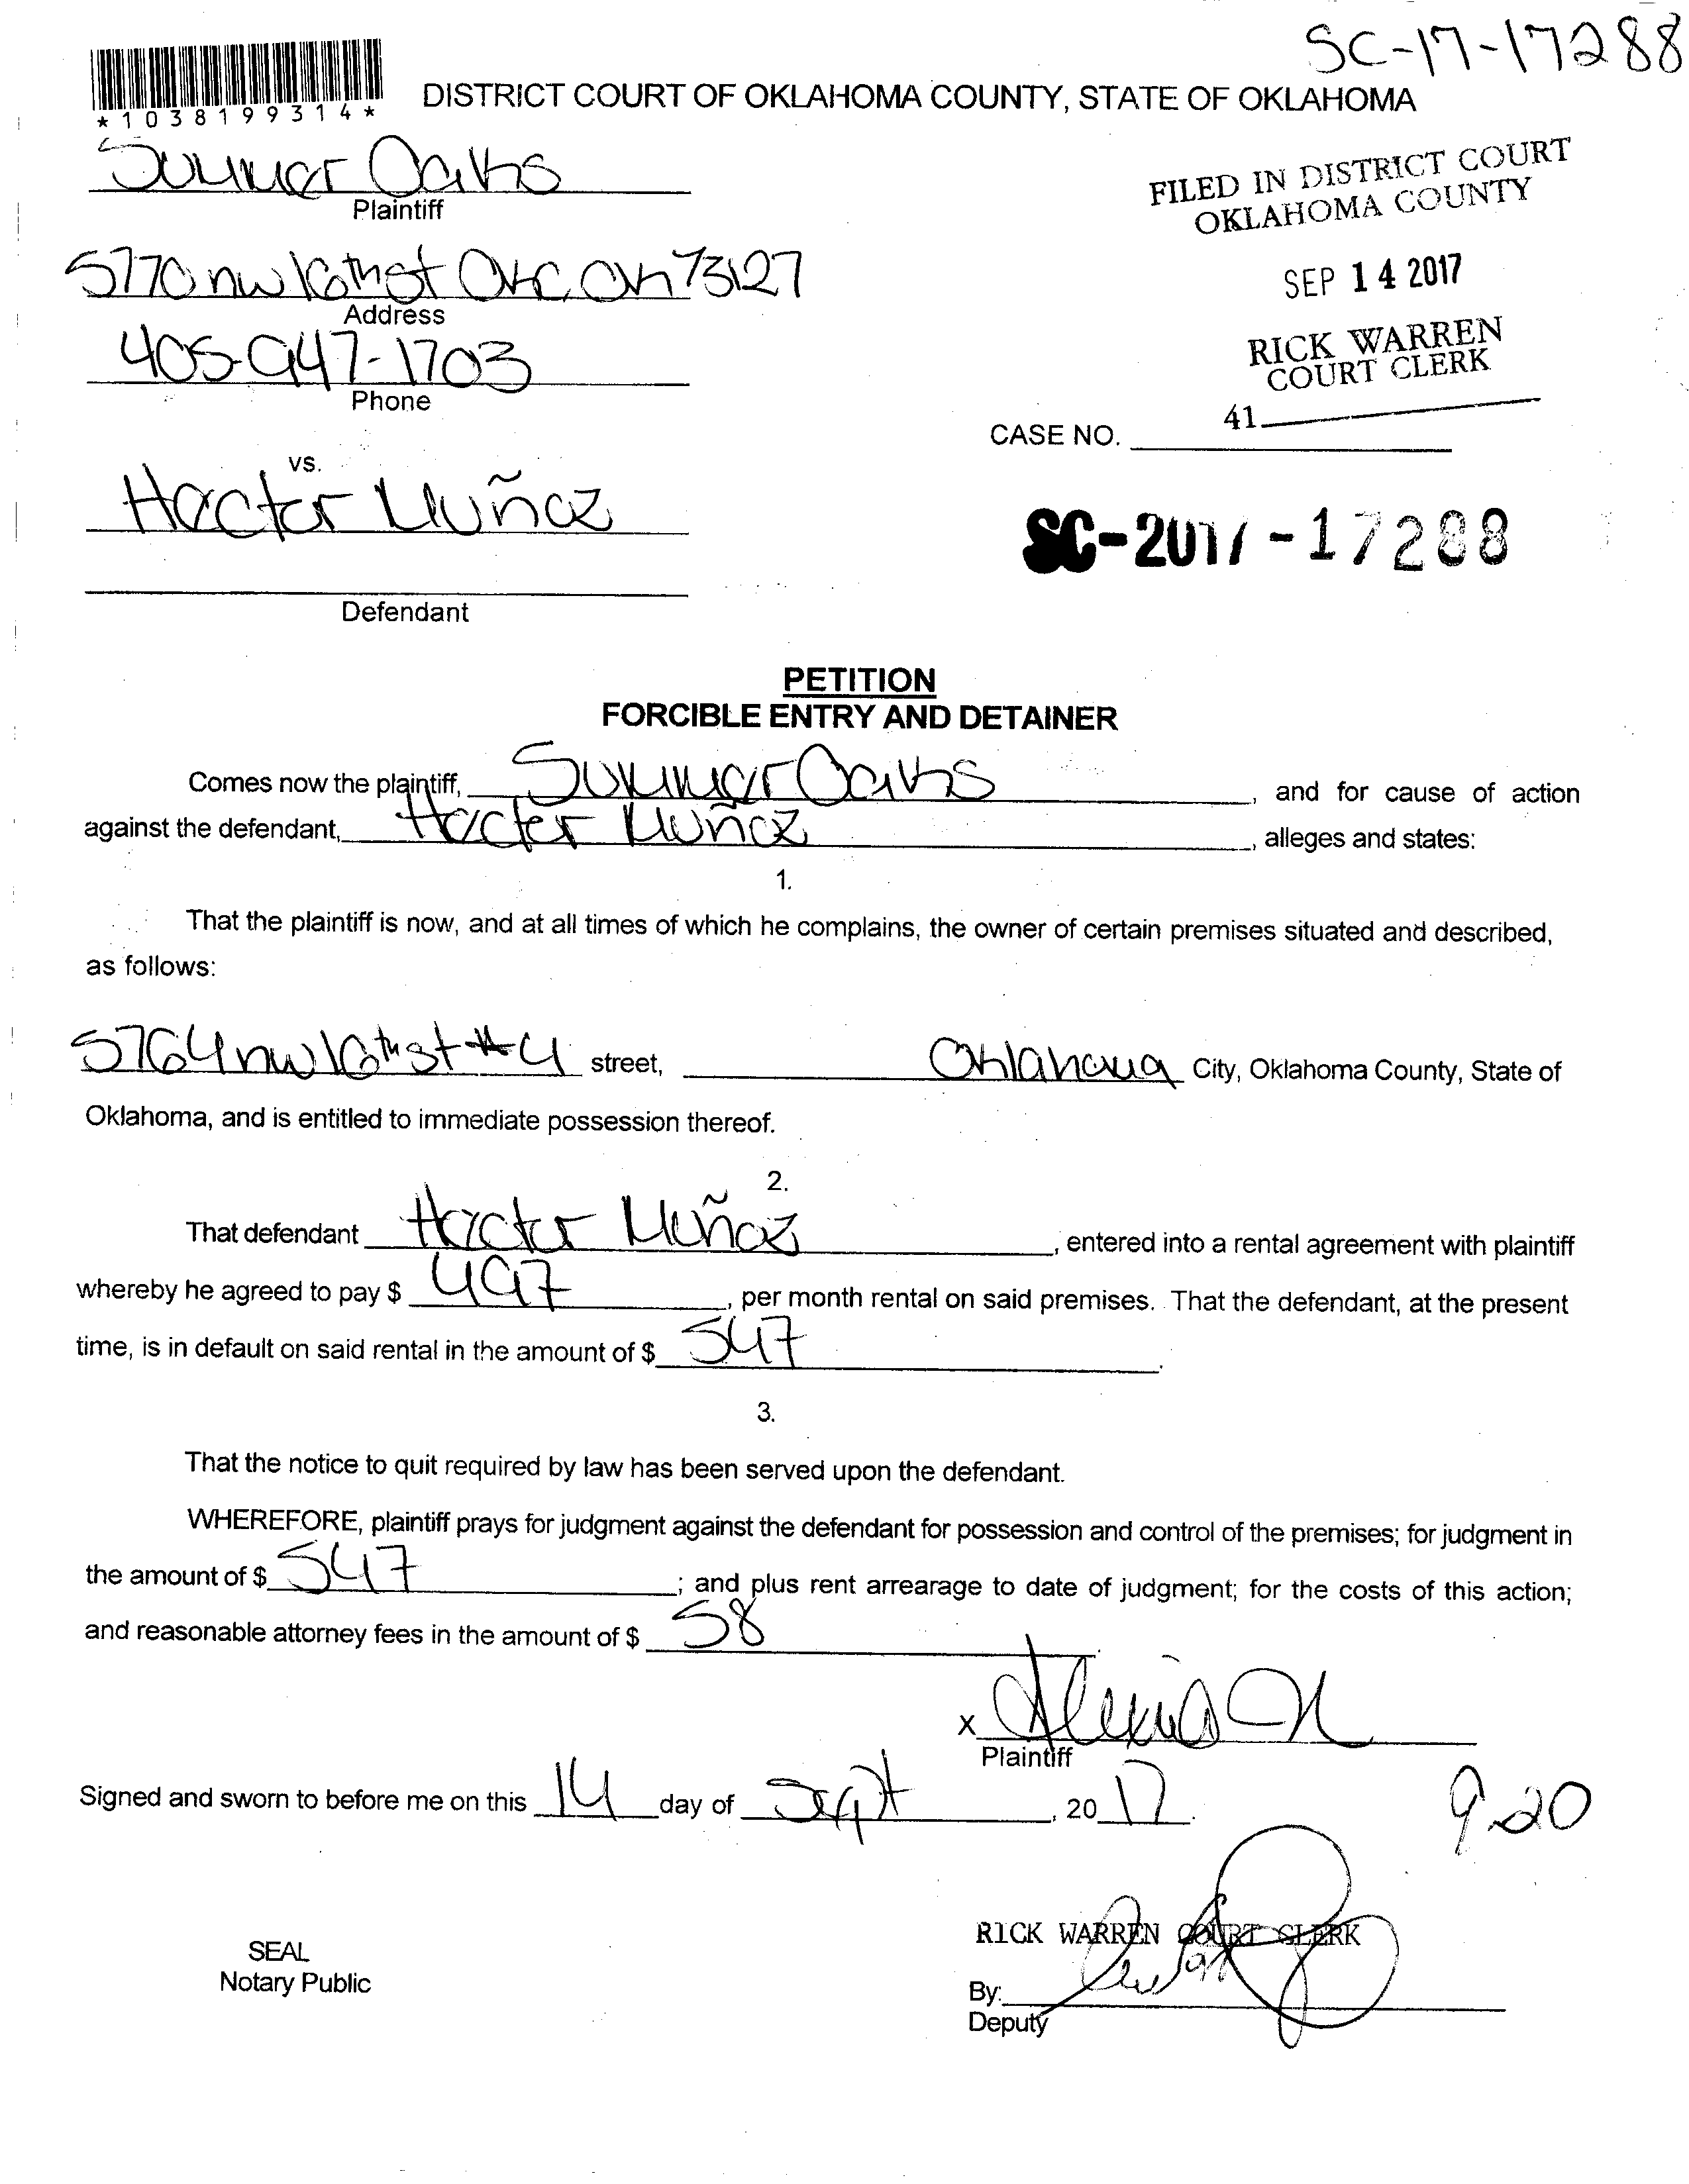 SC-17-17288
*1038199314*
DISTRICT COURT OF OKLAHOMA COUNTY, STATE OF OKLAHOMA
Summer Oaks
Plaintiff
FILED IN DISTRICT COURT
OKLAHOMA COUNTY
5770 nw 16th st OKC, OK 73127
Address
SEP 14 2017
405-947-1703
Phone
RICK WARREN
COURT CLERK
41
CASE NO.
vs.
Hector Muñoz
SC-2017-17288
Defendant
PETITION
FORCIBLE ENTRY AND DETAINER
Comes now the plaintiff, Summer Oaks, and for cause of action
against the defendant, Hector Muñoz, alleges and states:
1.
That the plaintiff is now, and at all times of which he complains, the owner of certain premises situated and described,
as follows:
5764 nw 16th st #4 street, Oklahoma City, Oklahoma County, State of
Oklahoma, and is entitled to immediate possession thereof.
2.
That defendant Hector Muñoz, entered into a rental agreement with plaintiff
whereby he agreed to pay $ 497, per month rental on said premises. That the defendant, at the present
time, is in default on said rental in the amount of $ 547.
3.
That the notice to quit required by law has been served upon the defendant.
WHEREFORE, plaintiff prays for judgment against the defendant for possession and control of the premises; for judgment in
the amount of $ 547; and plus rent arrearage to date of judgment; for the costs of this action;
and reasonable attorney fees in the amount of $ 58.
x
Plaintiff
Signed and sworn to before me on this 14 day of Sept, 2017.
9-20
RICK WARREN COURT CLERK
SEAL
Notary Public
By:
Deputy